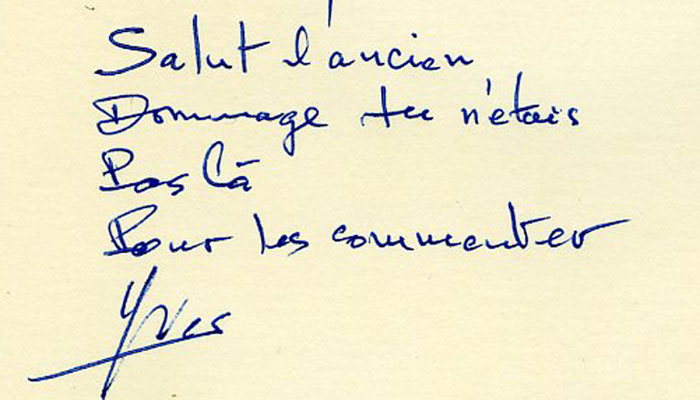 Salut l'ancien
Dommage tu n'étais
Pas là
Pour les commenter
Yves